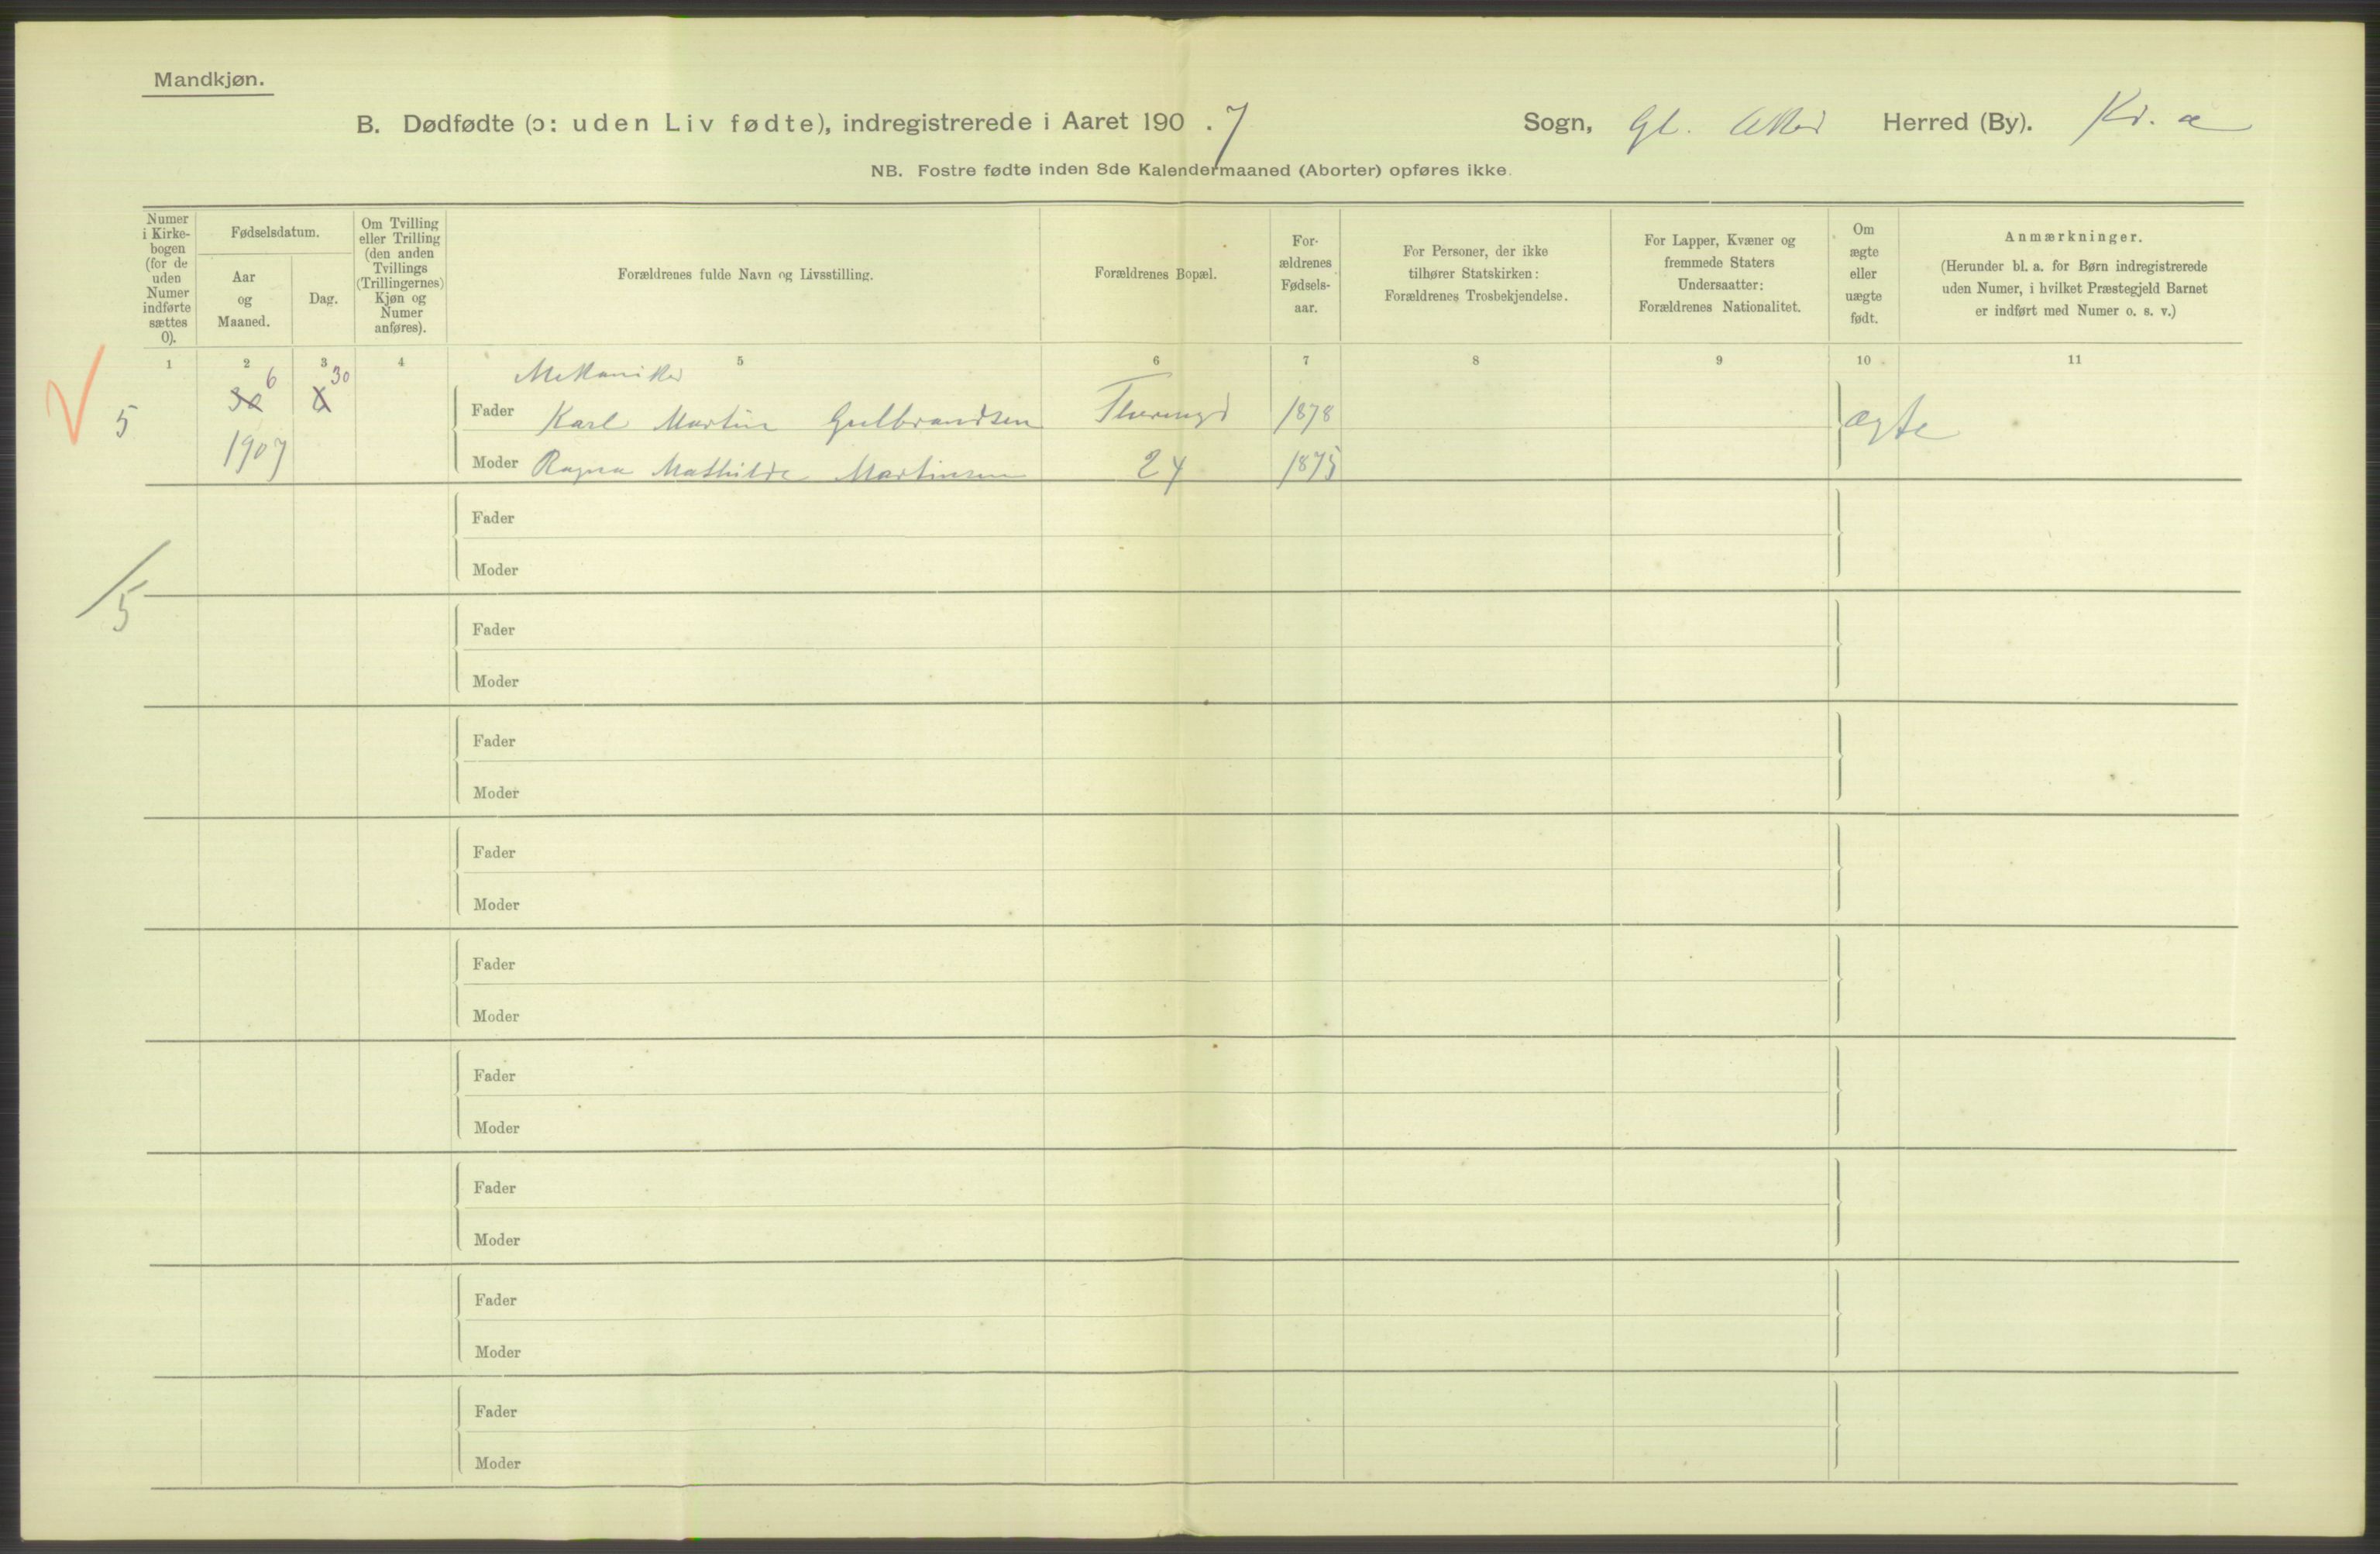 Mandkjøn.
B. Dødfødte (ɔ: uden Liv fødte), indregistrerede i Aaret 190 . 7 Sogn, Gl. Aker Herred (By). Kr. a
NB. Fostre fødte inden 8de Kalendermaaned (Aborter) opføres ikke.
Numer i Kirke-bogen (for de uden Numer indførte sættes 0).
Fødselsdatum.
Aar og Maaned.
Dag.
Om Tvilling eller Trilling (den anden Tvillings (Trillingernes) Kjøn og Numer anføres).
Forældrenes fulde Navn og Livsstilling.
Forældrenes Bopæl.
For-ældrenes Fødsels-aar.
For Personer, der ikke tilhører Statskirken: Forældrenes Trosbekjendelse.
For Lapper, Kvæner og fremmede Staters Undersaatter: Forældrenes Nationalitet.
Om ægte eller uægte født.
Anmærkninger.
(Herunder bl. a. for Børn indregistrerede uden Numer, i hvilket Præstegjeld Barnet er indført med Numer o. s. v.)
1 2 3 4 5 6 7 8 9 10 11
6 30 Mekaniker
5 30 6 Fader Karl Martin Gulbrandsen 1878 ægte
1907 Moder Ragna Mathilde Martinsen 24 1875
Fader
Moder
5
Fader
Moder
Fader
Moder
Fader
Moder
Fader
Moder
Fader
Moder
Fader
Moder
Fader
Moder
Fader
Moder